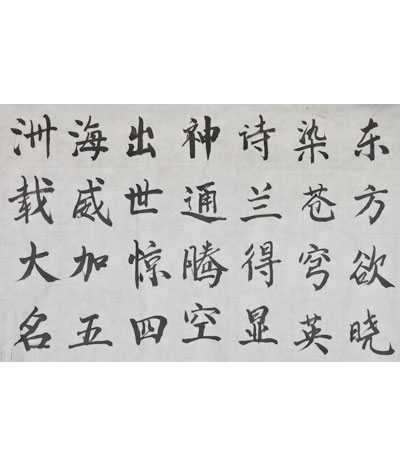 东方欲晓
染苍穹英
诗兰得显
神通腾空
出世惊四
海威加五
洲载大名